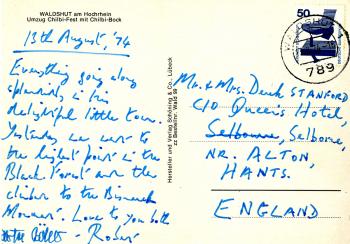 WALDSHUT am Hochrhein
Umzug Chilbi-Fest mit Chilbi-Bock
13th August, 74
Everything going along
splendidly in this
delightful little town.
Yesterday we went to
the highest point in the
Black Forest and the
climb to the Bismarck
Monument. Love to you both
- Robin
Hersteller und Verlag Schöning & Co., Lübeck
zz Bestellnr. Wald 99
50
WALDSHUT
789
Mr. & Mrs. Derek STANFORD
C/O Queens Hotel,
Selbourne, Selborne,
NR. ALTON,
HANTS.
ENGLAND